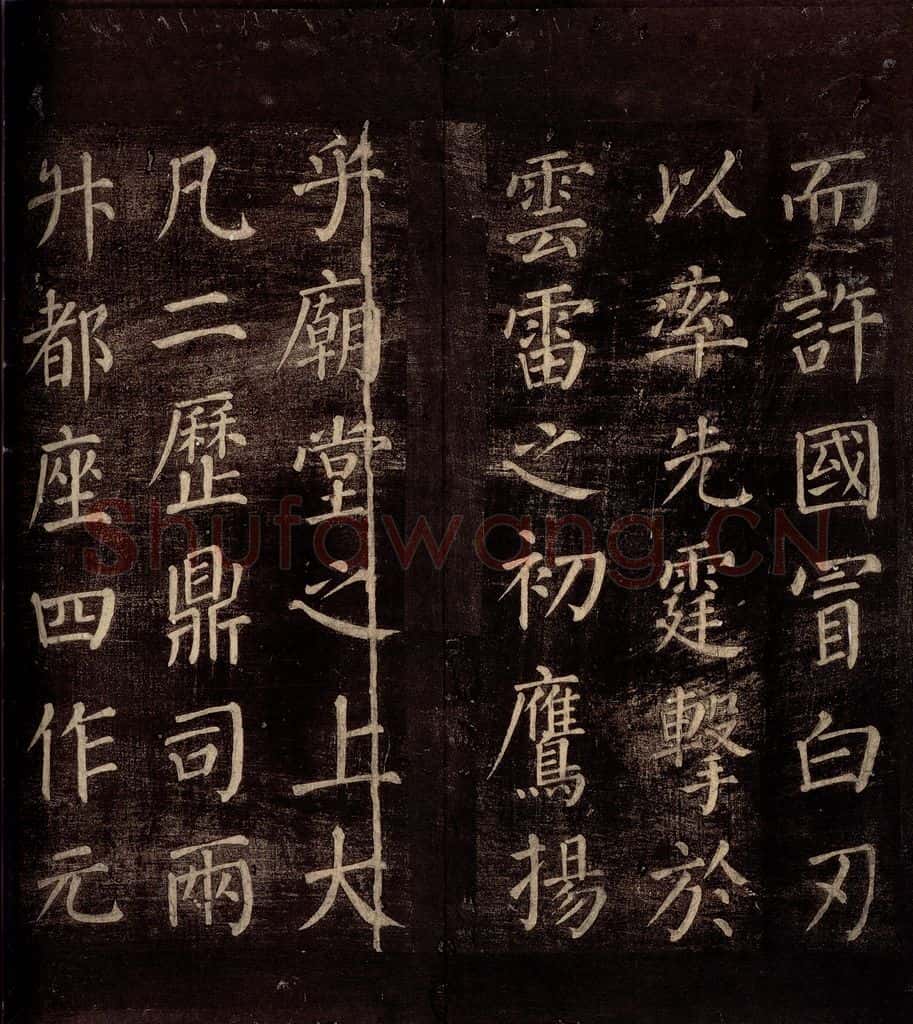 而許國冒白刃
以率先霆擊於
雲雷之初鷹揚
乎廟堂之上大
凡二歷鼎司兩
升都座四作元
Shufawang.CN